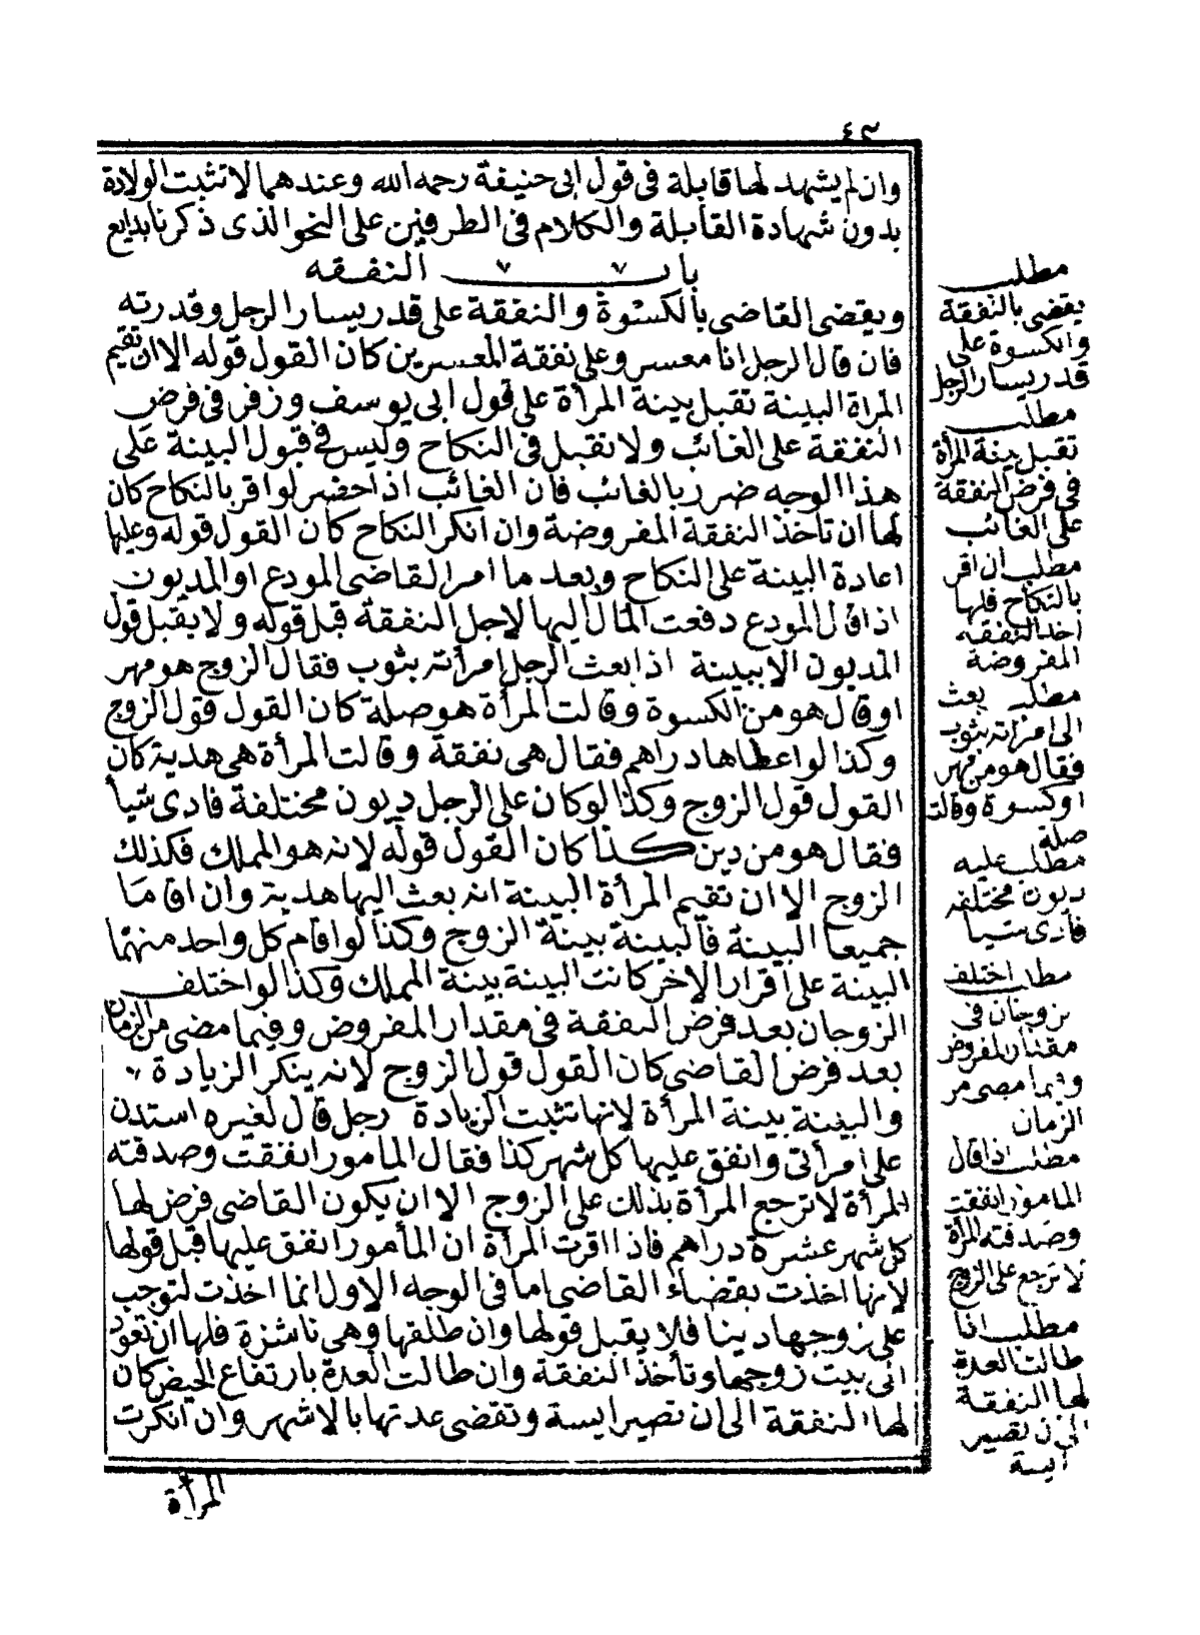 ٤٣
وان لم يشهد لها قابلة فى قول ابى حنيفة رحمه الله وعندهما لا تثبت الولادة
بدون شهادة القابلة والكلام فى الطرفين على النحو الذى ذكرنا بدايع
باب النفقه
ويقضى القاضى بالكسوة والنفقة على قدر يسار الرجل وقدرته
فان قال الرجل انا معسر وعلى نفقة المعسرين كان القول قوله الا ان تقيم
المراة البينة تقبل بينة المرأة على قول ابى يوسف وزفر فى فرض
النفقة على الغائب ولا تقبل فى النكاح وليس فى قبول البينة على
هذا الوجه ضرر بالغائب فان الغائب اذا حضر لو اقر بالنكاح كان
لها ان تأخذ النفقة المفروضة وان انكر النكاح كان القول قوله وعليها
اعادة البينة على النكاح وبعد ما امر القاضى المودع او المديون
اذا قال المودع دفعت المال اليها لاجل النفقة قبل قوله ولا يقبل قول
المديون الا ببينة اذا بعث الرجل امرأته بثوب فقال الزوج هو مهر
او قال هو من الكسوة وقالت المرأة هو صلة كان القول قول الزوج
وكذا لو اعطاها دراهم فقال هى نفقة وقالت المرأة هى هدية كان
القول قول الزوج وكذا لو كان على الرجل ديون مختلفة فادى شيأ
فقال هو من دين كذا كان القول قوله لانه هو المملك فكذلك
الزوج الا ان تقيم المرأة البينة انه بعث اليها هدية وان اقاما
جميعا البينة فالبينة بينة الزوج وكذا لو اقام كل واحد منهما
البينة على اقرار الاخر كانت البينة بينة المملك وكذا لو اختلف
الزوجان بعد فرض النفقة فى مقدار المفروض وفيما مضى من الزمان
بعد فرض القاضى كان القول قول الزوج لانه ينكر الزيادة
والبينة بينة المرأة لانها تثبت الزيادة رجل قال لغيره استدن
على امرأتى وانفق عليها كل شهر كذا فقال المامور انفقت وصدقته
المرأة لا ترجع المرأة بذلك على الزوج الا ان يكون القاضى فرض لها
كل شهر عشرة دراهم فاذا اقرت المرأة ان المأمور انفق عليها قبل قولها
لانها اخذت بقضاء القاضى اما فى الوجه الاول انما اخذت لتوجب
على زوجها دينا فلا يقبل قولها وان طلقها وهى ناشزة فلها ان تعود
الى بيت زوجها وتأخذ النفقة وان طالت العدة بارتفاع الحيض كان
لها النفقة الى ان تصير ايسة وتقضى عدتها بالاشهر وان انكرت
المرأة
مطلب
يقضى بالنفقة
والكسوة على
قدر يسار الرجل
مطلب
تقبل بينة المرأة
فى فرض النفقة
على الغائب
مطلب ان اقر
بالنكاح فلها
اخذ النفقه
المفروضة
مطلب بعث
الى امرأته بثوب
فقال هو من مهر
او كسوة وقالت
صلة
مطلب عليه
ديون مختلفه
فادى شيأ
مطلب اختلف
زوجان فى
مقدار المفروض
وفيما مضى من
الزمان
مطلب اذا قال
المامور انفقت
وصدقته المرأة
لا ترجع على الزوج
مطلب اذا
طالت العدة
لها النفقة
الى ان تصير
ايسة